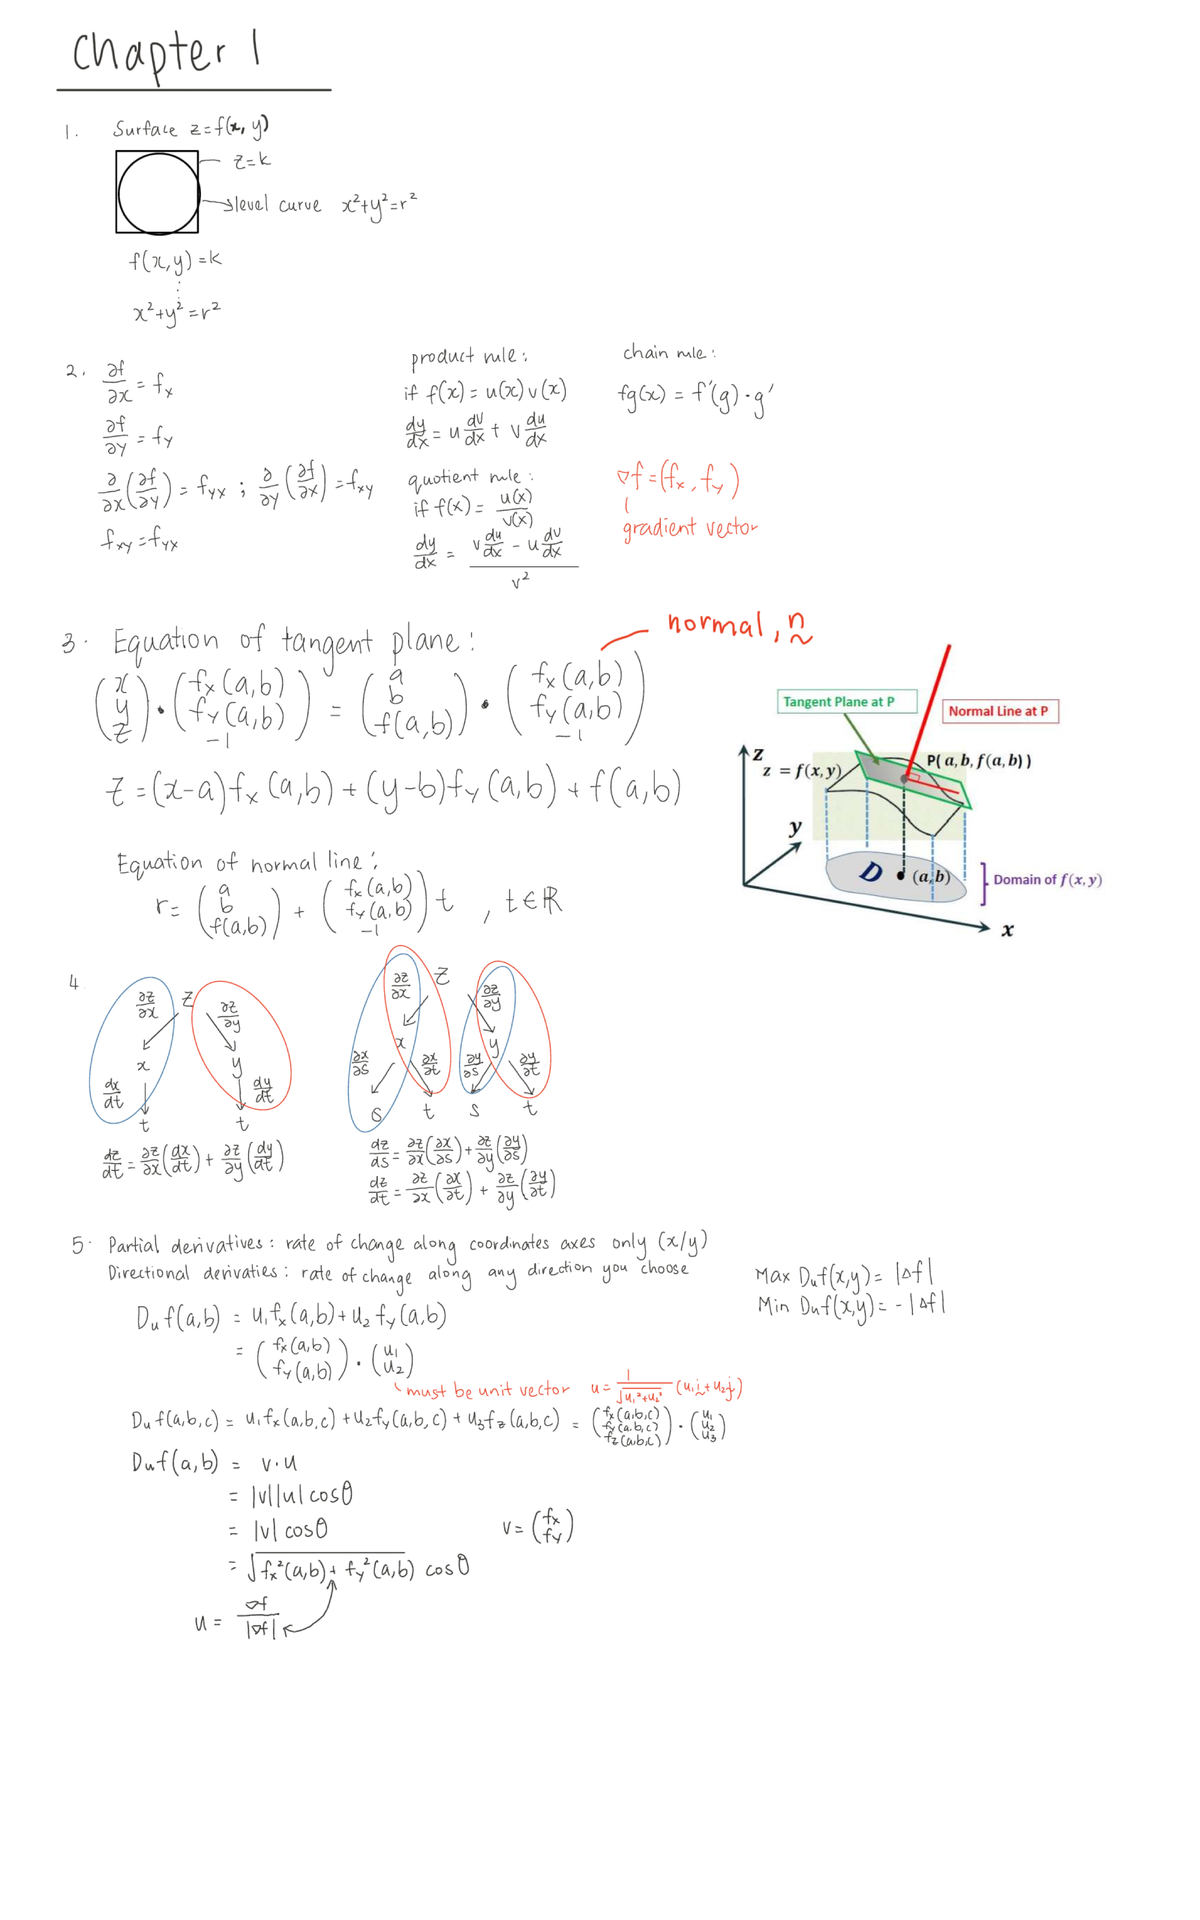 Chapter 1
1. Surface z=f(x, y)
z=k
level curve x²+y²=r²
f(x,y)=k
⋮
x²+y²=r²
2. ∂f/∂x = fx
∂f/∂y = fy
∂/∂x(∂f/∂y) = fyx ; ∂/∂y(∂f/∂x) = fxy
fxy=fyx
product rule:
if f(x)=u(x)v(x)
dy/dx = u dv/dx + v du/dx
quotient rule:
if f(x)= u(x)/v(x)
dy/dx = (v du/dx - u dv/dx)/v²
chain rule:
fg(x) = f'(g)·g'
∇f=(fx, fy)
gradient vector
3. Equation of tangent plane:
normal, n
(x y z)·(fx(a,b) fy(a,b) -1) = (a b f(a,b))·(fx(a,b) fy(a,b) -1)
z=(x-a)fx(a,b)+(y-b)fy(a,b)+f(a,b)
Equation of normal line:
r= (a b f(a,b)) + (fx(a,b) fy(a,b) -1)t , t∈ℝ
Tangent Plane at P
Normal Line at P
z
z = f(x,y)
P( a, b, f(a, b) )
y
D
(a,b)
Domain of f(x, y)
x
4.
∂z/∂x z ∂z/∂y
x y
dx/dt dy/dt
t t
dz/dt = ∂z/∂x(dx/dt) + ∂z/∂y(dy/dt)
∂z/∂x z ∂z/∂y
x y
∂x/∂s ∂x/∂t ∂y/∂s ∂y/∂t
s t s t
dz/ds = ∂z/∂x(∂x/∂s)+∂z/∂y(∂y/∂s)
dz/dt = ∂z/∂x(∂x/∂t) + ∂z/∂y(∂y/∂t)
5. Partial derivatives: rate of change along coordinates axes only (x/y)
Directional derivaties: rate of change along any direction you choose
Max Duf(x,y)= |∆f|
Min Duf(x,y)= -|∆f|
Duf(a,b) = u₁fx(a,b)+u₂fy(a,b)
= (fx(a,b) fy(a,b))·(u₁ u₂)
must be unit vector u= 1/√(u₁²+u₂²) (u₁i+u₂j)
Duf(a,b,c) = u₁fx(a,b,c)+u₂fy(a,b,c)+u₃fz(a,b,c) = (fx(a,b,c) fy(a,b,c) fz(a,b,c))·(u₁ u₂ u₃)
Duf(a,b) = v·u
= |v||u|cosθ
= |v|cosθ
v= (fx fy)
= √(fx²(a,b)+fy²(a,b)) cosθ
u = ∇f/|∇f|